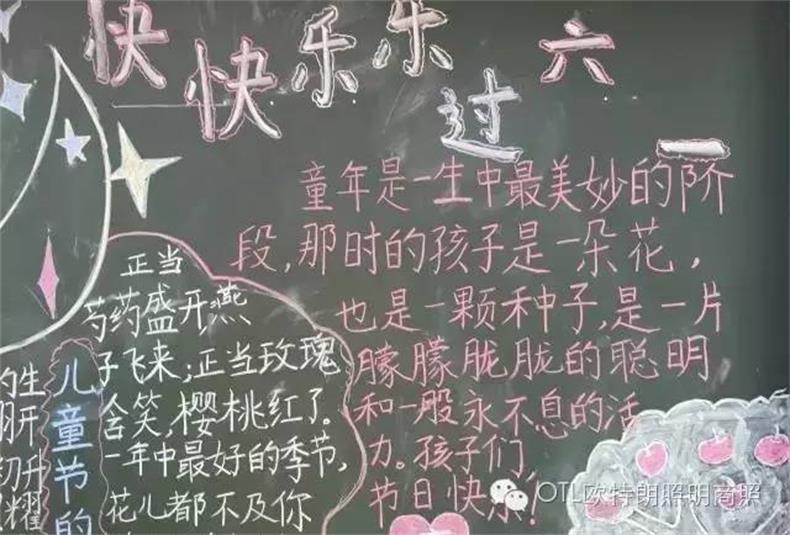 快快乐乐过六一
童年是一生中最美妙的阶
段,那时的孩子是一朵花,
也是一颗种子,是一片
朦朦胧胧的聪明
和一般永不息的活
力。孩子们,
节日快乐!
正当
芍药盛开燕
子飞来;正当玫瑰
含笑,樱桃红了
一年中最好的季节,
花儿都不及你
儿童节的
生
升
耀
OTL欧特朗照明商照